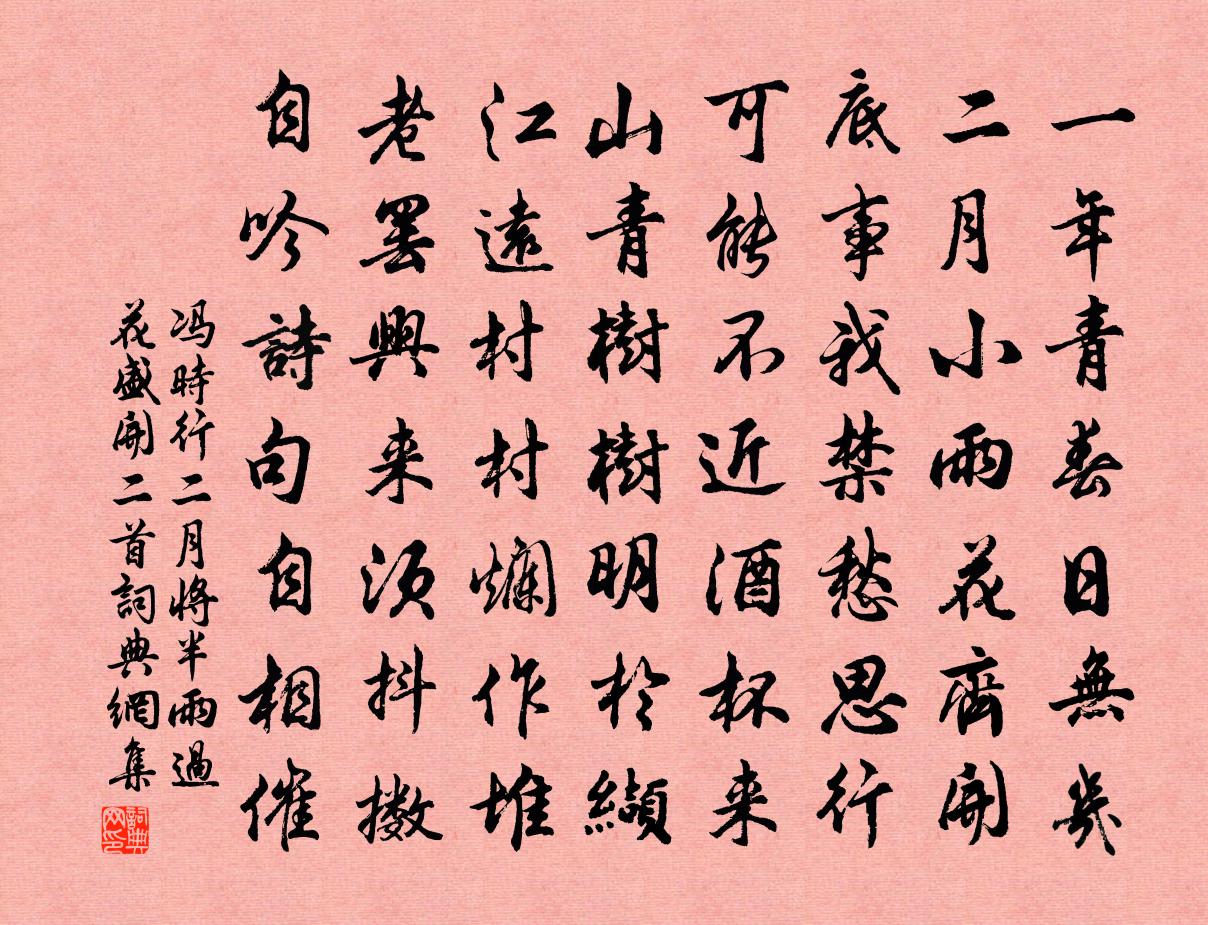 一年青春日無幾
二月小雨花齊開
底事我禁愁思行
可能不近酒杯来
山青樹樹明於纈
江遠村村爛作堆
老罢興来須抖擻
自吟詩句自相催
冯時行二月将半雨過
花盛開二首詞典網集
詞典
网印